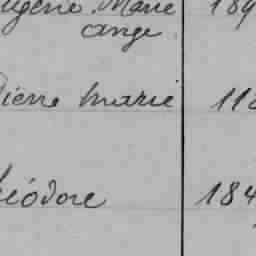 Eugène Marie 189
ange
Pierre Marie 118
Théodore 184